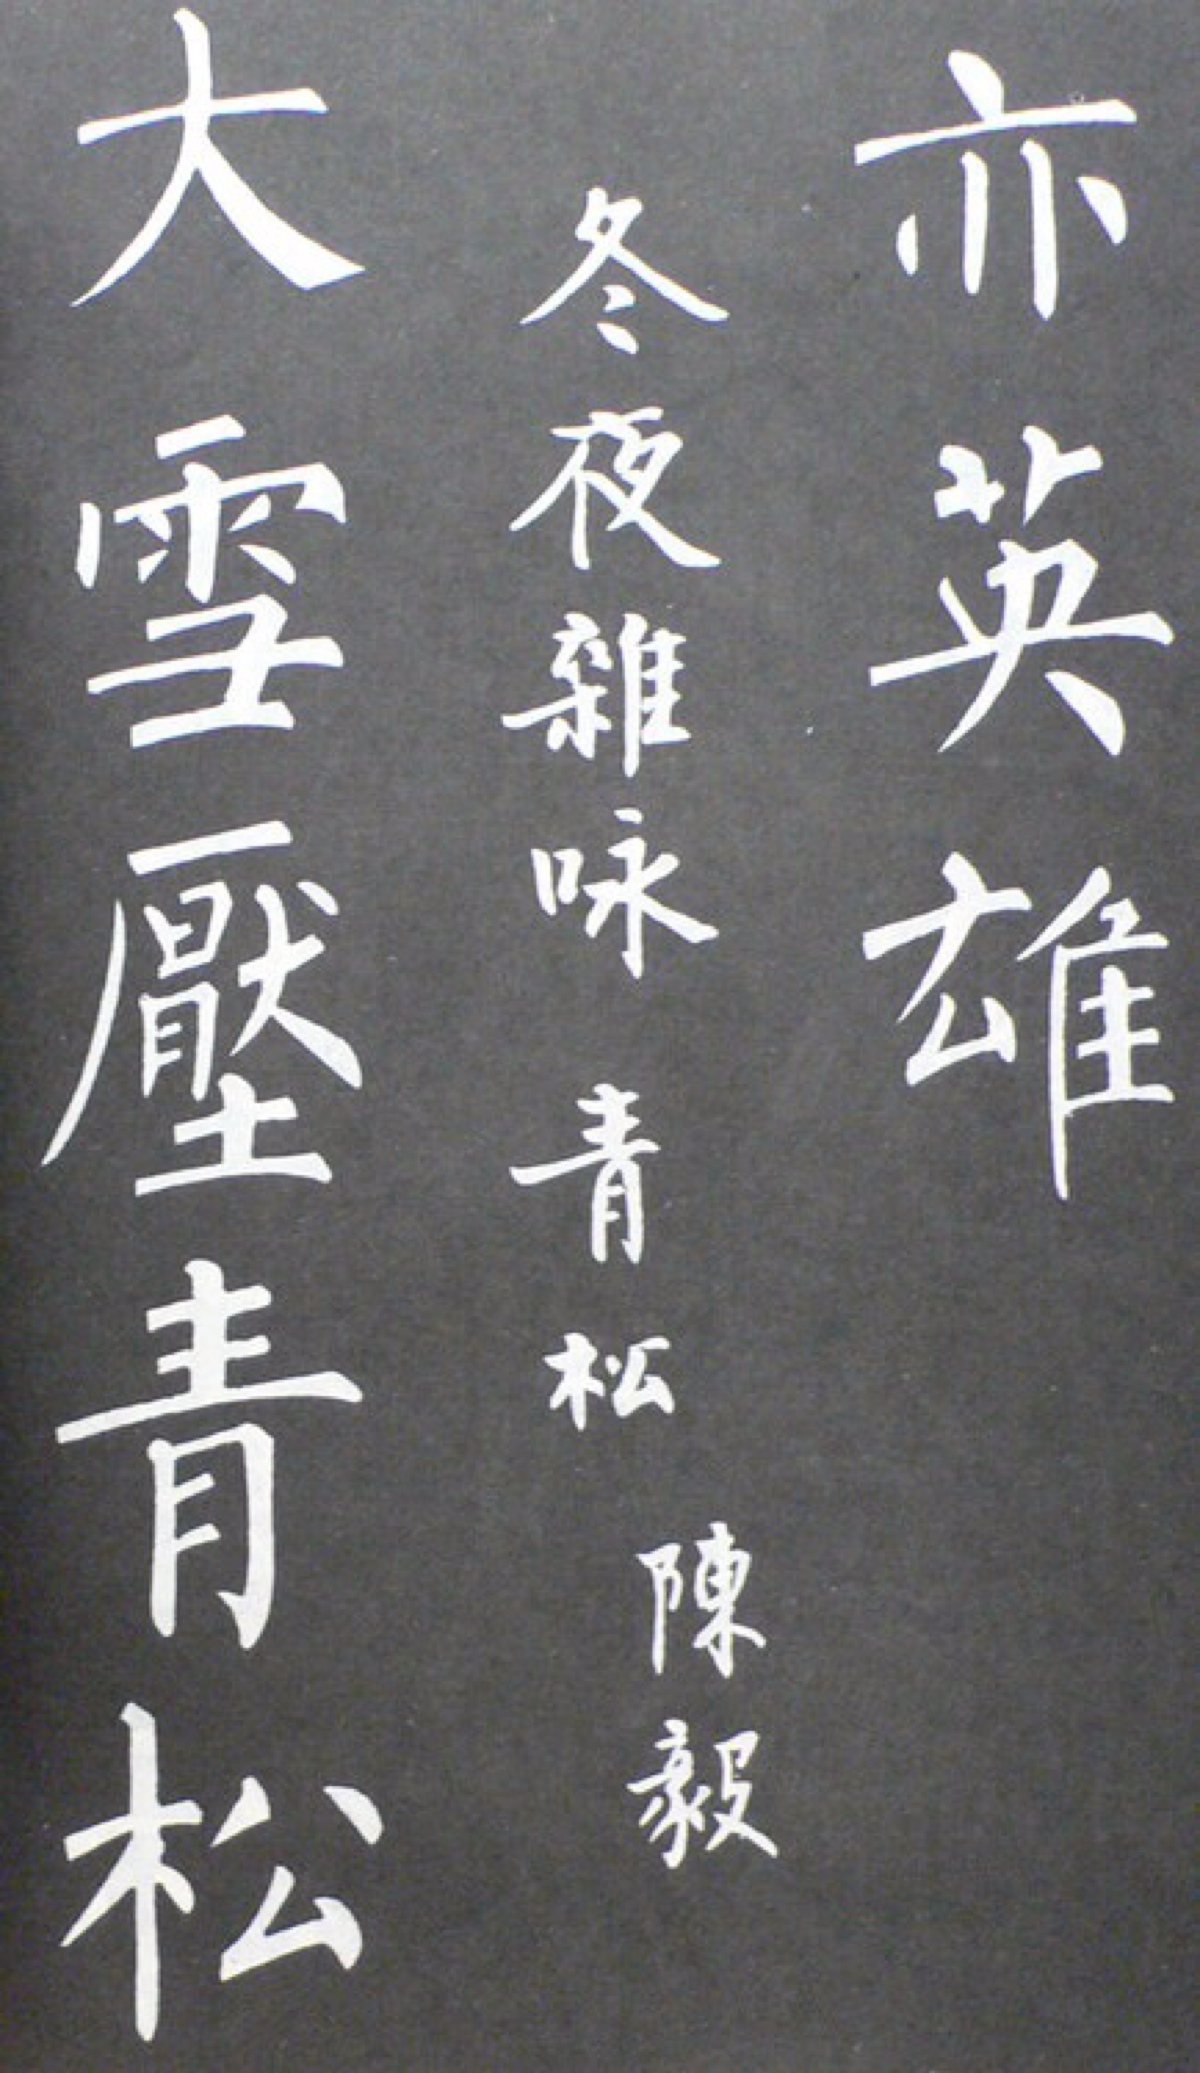 亦英雄
冬夜雜咏 青松
陳毅
大雪壓青松